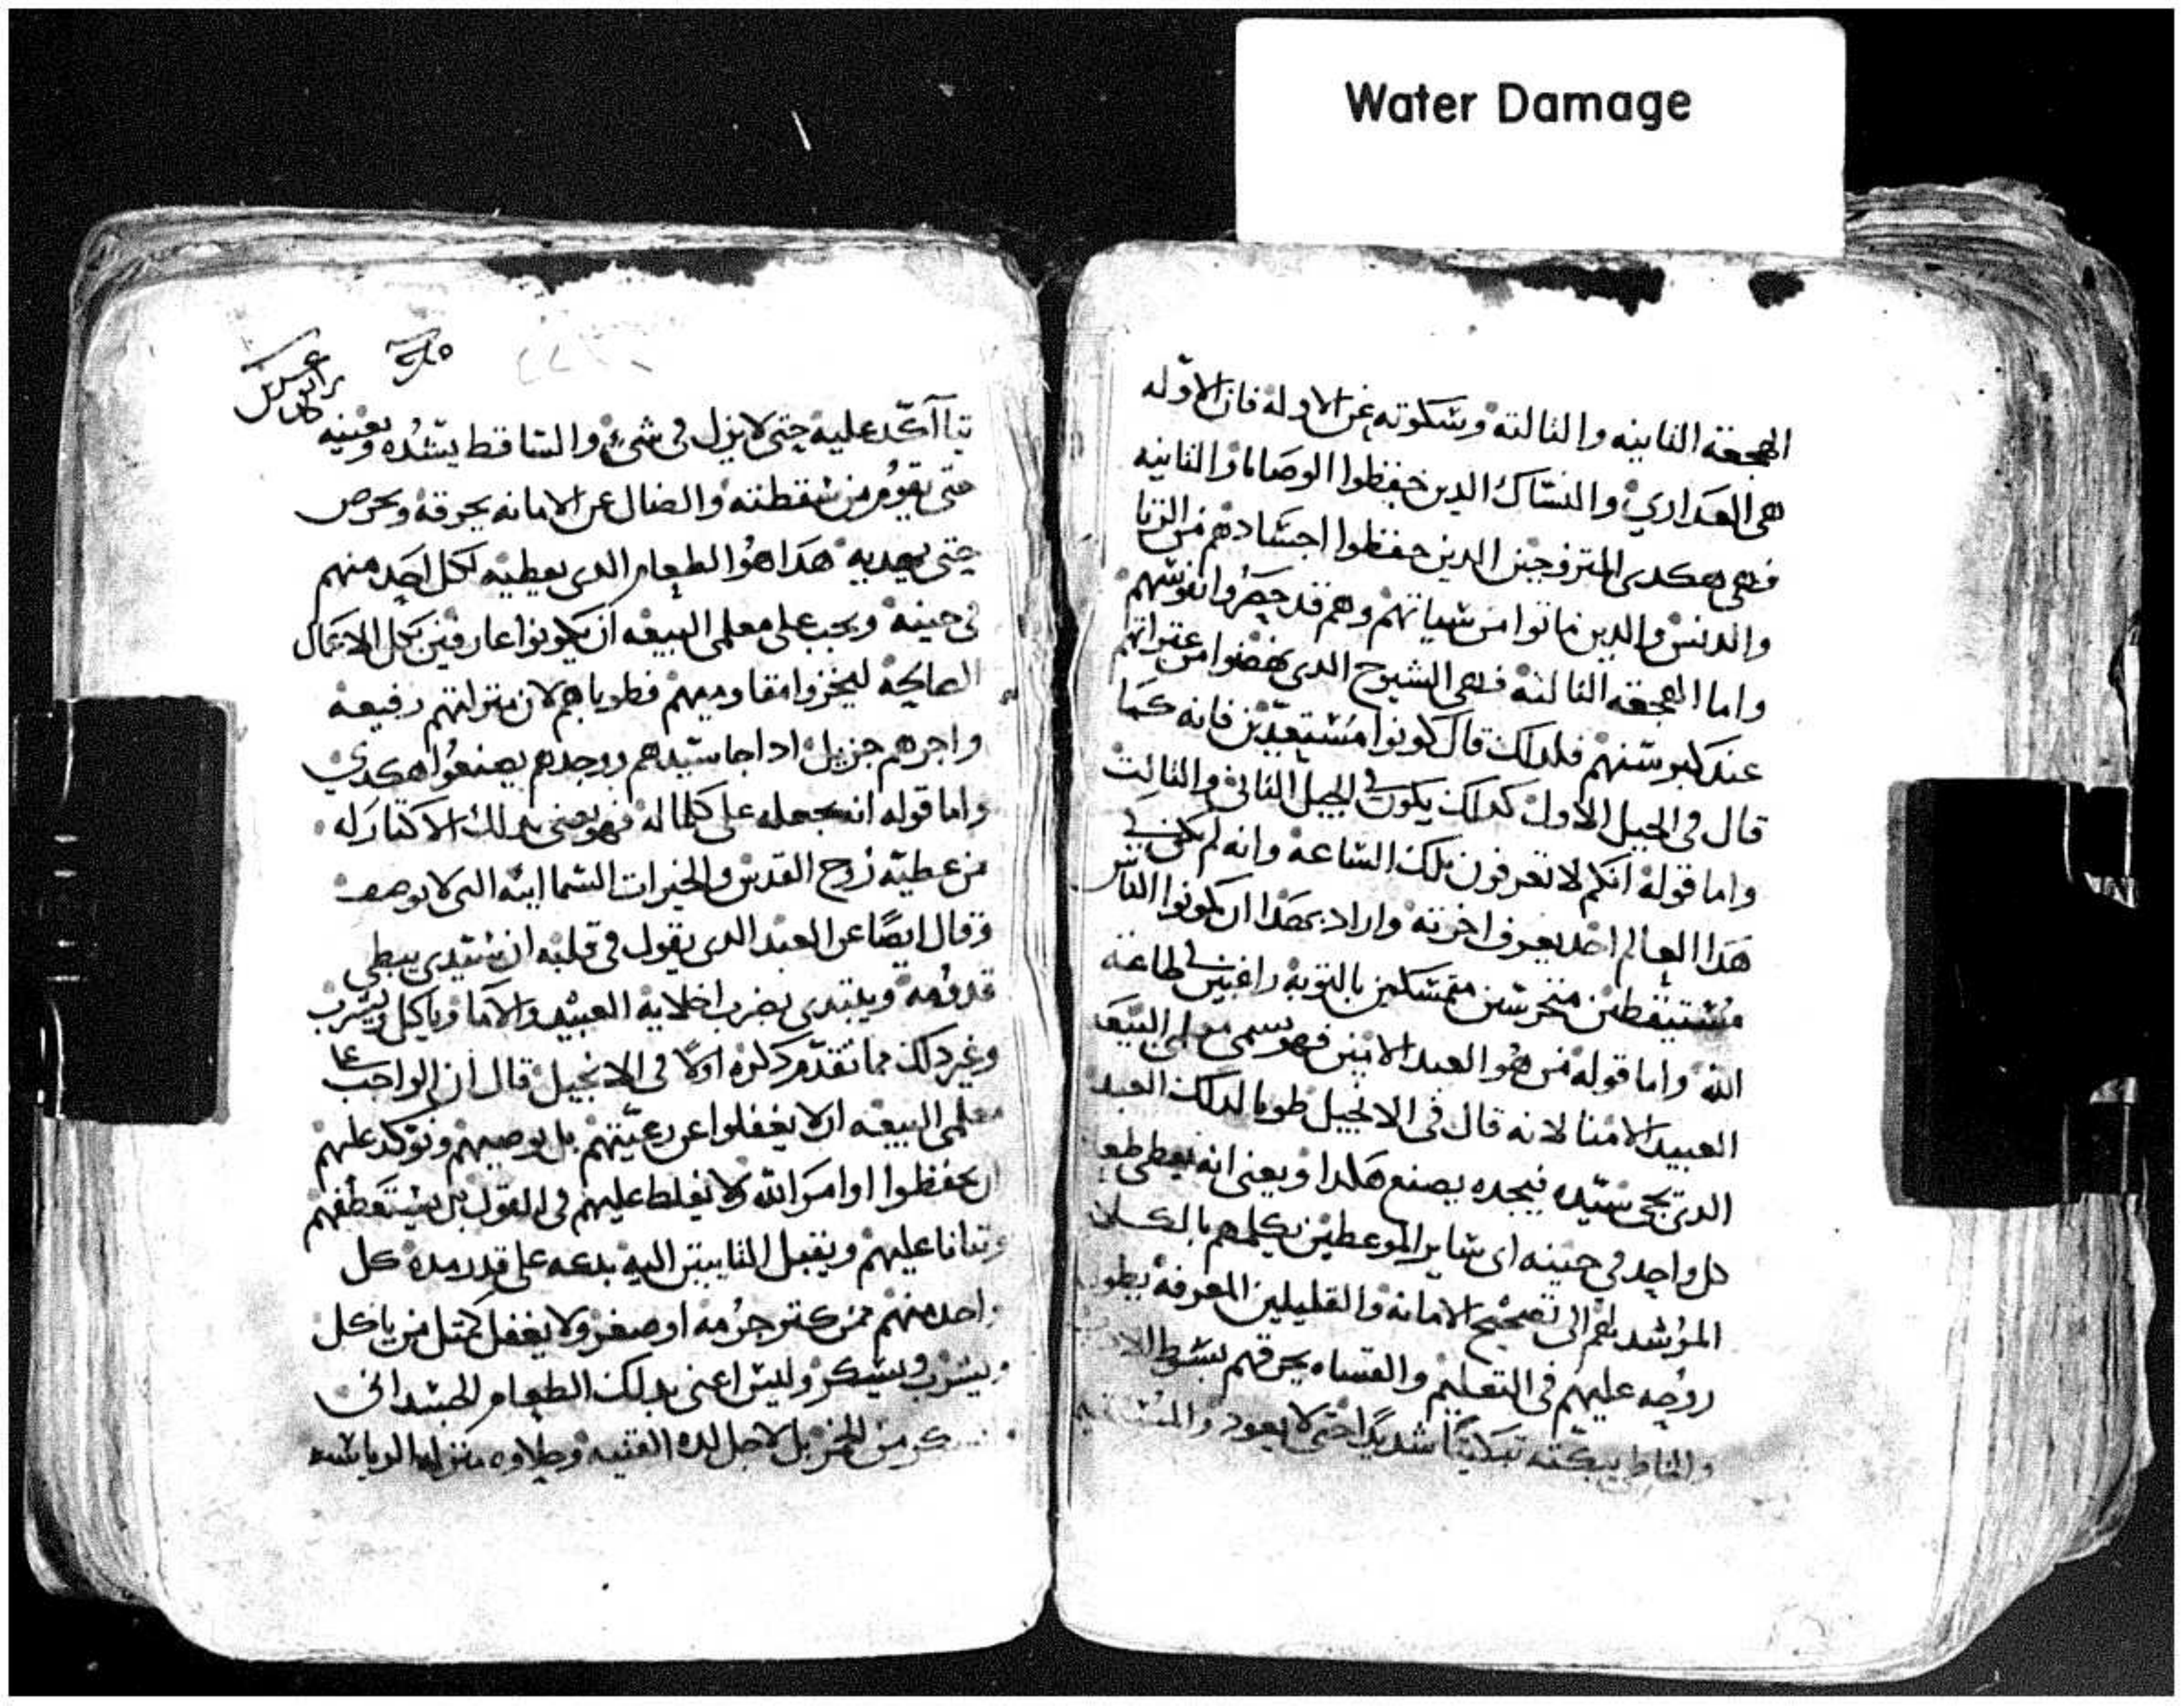 Water Damage
الهجعة الثانيه والثالثه وسكوته عن الاوله فان الاوله
هي العداري والنساك الدين حفظوا الوصايا والثانيه
فهي هكدى المتزوجين الدين حفظوا اجسادهم من الزنا
والدنس والدين ماتوا من شبابهم وهم قد حصروا نفوسهم
واما الهجعه الثالثه فهي الشيوخ الدى نهضوا من عتراتهم
عند كبر سنهم فلدلك قال كونوا مستعدين فانه كما
قال في الجبل الاول كدلك يكون في الجبل الثاني والثالث
واما قوله انكم لا تعرفون تلك الساعه وانه لم يكن في
هدا العالم احد يعرف اخرته واراد بهدا ان يكونوا الناس
مستيقظين متحرسين متمسكين بالتوبه راغبين في طاعة
الله واما قوله من هو العبد الامين فهو يسمي معلمي البيعه
العبيد الامنا لانه قال في الانجيل طوبا لدلك العبد
الدي يجي سيده فيجده يصنع هكدا ويعني انه يعطي طعا
كل واحد في حينه اى ساير الموعطين يكلمهم بالكلام
المرشد لهم الى تصحيح الامانه والقليلين المعرفه يطو
روحه عليهم في التعليم والقساه يحرقهم بسوط الا
والخاطي يبكته تبكيتا شديدا حتى لا يعود والمستقيم
يتاأكد عليه حتى لا يزل في شي والساقط يسنده ويعينه
حتى يقوم من سقطته والضال عن الامانه يحرقه ويحرص
حتى يهديه هدا هو الطعام الدى يعطيه لكل احد منهم
في حينه ويجب على معلمى البيعه ان يكونوا عارفين بكل الاعمال
الصالحه ليخزوا مقاوميهم فطوباهم لان منزلتهم رفيعه
واجرهم جزيل ادا جا سيدهم ووجدهم يصنعوا هكدي
واما قوله انه يجعله على كلما له فهو يعني بدلك الاكتار له
من عطية روح القدس والخيرات السمااييه التى لا توصف
وقال ايضا عن العبد الدى يقول في قلبه ان سيدى يبطي
قدومه ويبتدى يضرب اخلايه العبيد والاما وياكل ويشرب
وغير دلك مما تقدم دكره اولا في الانجيل قال ان الواجب على
معلمى البيعه ان لا يغفلوا عن رعيتهم بل يوصيهم ويوكد عليهم
ان يحفظوا اوامر الله ولا يغلط عليهم في القول بل يستعطفهم
ويتانا عليهم ويقبل التايبين اليه بدعه على قدر مدة كل
واحد منهم ممن كتر جرمه او صغر ولا يغفل كمتل من ياكل
ويشرب ويسكر وليس اعني بدلك الطعام الجسداني
من الخمر بل لاجل لدة القنيه وحلاوه منزلة الرياسه